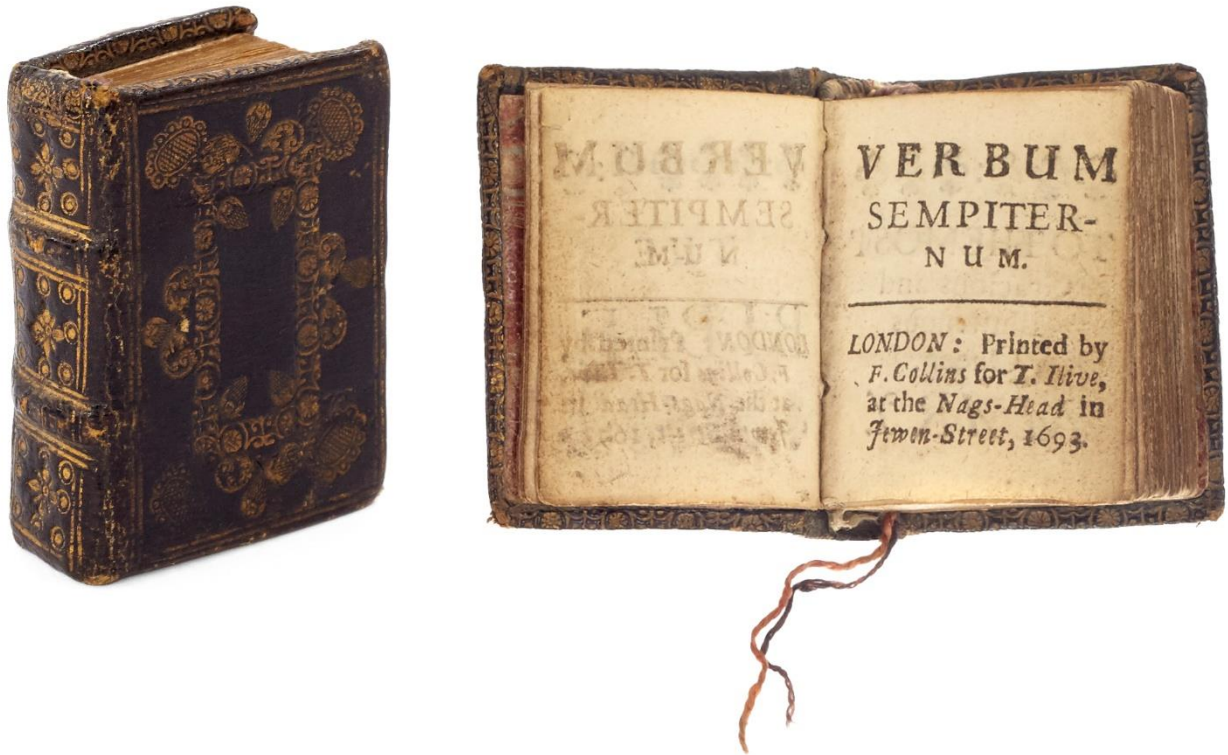 VERBUM
SEMPITER-
NUM.
LONDON: Printed by
F. Collins for T. Ilive,
at the Nags-Head in
Jewen-Street, 1693.